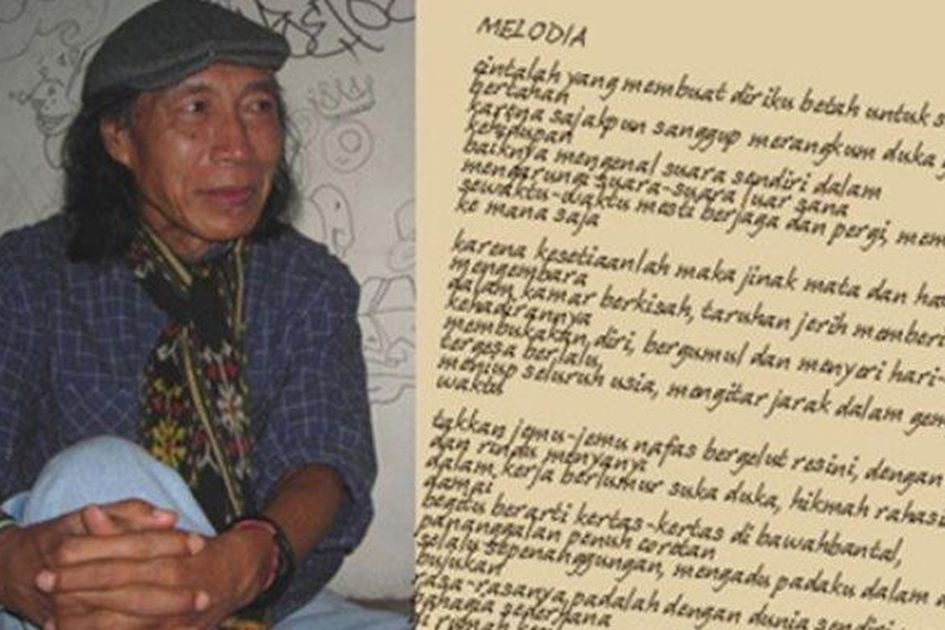 MELODIA
cintalah yang membuat diriku betah untuk
bertahan
karena sajakpun sanggup merangkum duka
kehidupan
baiknya mengenal suara sendiri dalam
mengarungi suara-suara luar sana
sewaktu-waktu mesti berjaga dan pergi,
ke mana saja
karena kesetiaanlah maka jinak mata dan
mengembara
dalam kamar berkisah, taruhan jerih
kehadirannya
membukakan diri, bergumul dan menyeri hari-
tergesa berlalu
meniup seluruh usia, mengitar jarak dalam
waktu
takkan jemu-jemu nafas bergelut resini, dengan
dan rindu menyanyi
dalam kerja berlumur suka duka, hikmah
damai
begitu berarti kertas-kertas di bawahbantal,
pananggalan penuh coretan
selalu sepenanggungan, mengadu padaku dalam
bujukan
rasa-rasanya padalah dengan dunia sendiri
bahagia sederhana